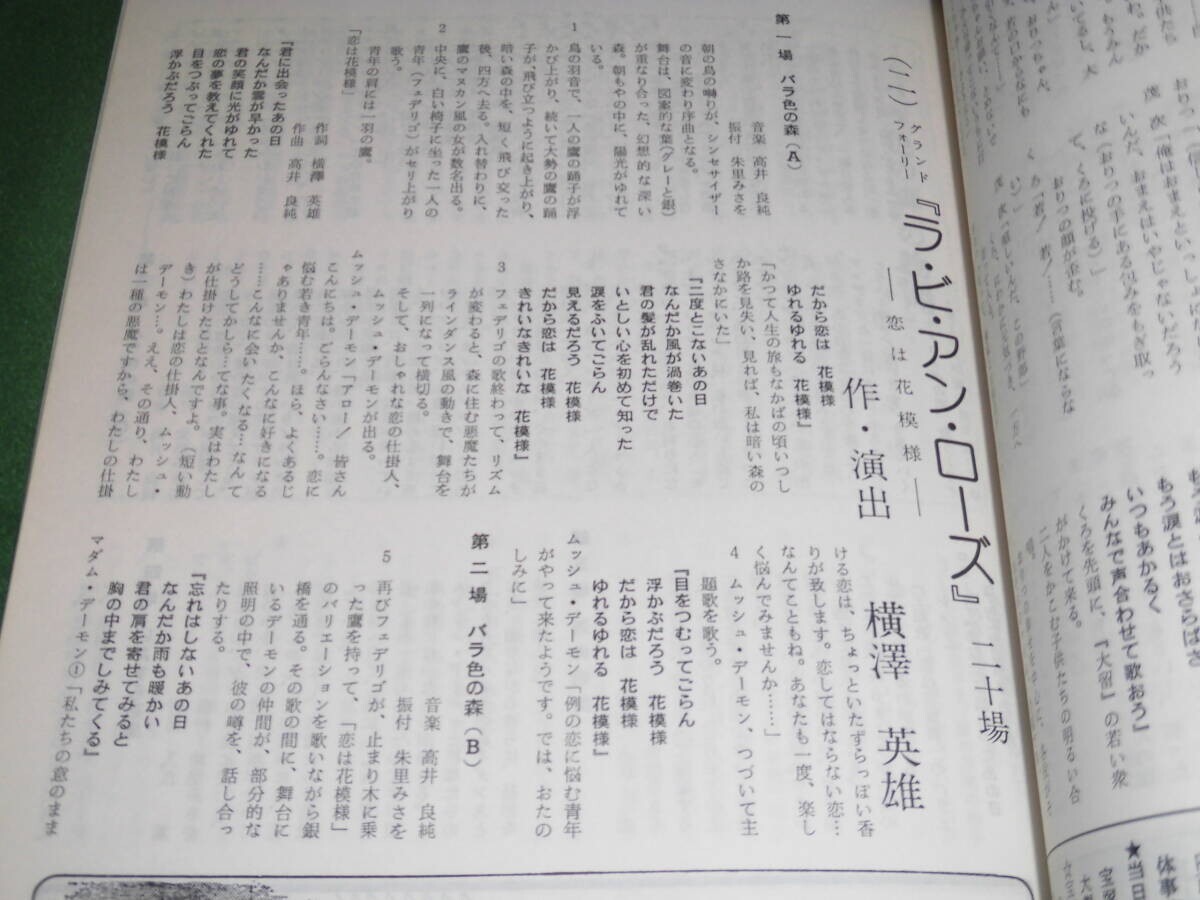 (二) グランド
フォーリー
『ラ・ビ・アン・ローズ』 二十場
― 恋は花模様 ―
作・演出 横澤 英雄
第一場 バラ色の森(A)
音楽 高井 良純
振付 朱里みさを
朝の鳥の囀りが、シンセサイザー
の音に変わり序曲となる。
舞台は、図案的な葉(グレーと銀)
が重なり合った、幻想的な深い
森。朝もやの中に、陽光がゆれて
いる。
1 鳥の羽音で、一人の鷹の踊子が浮
かび上がり、続いて大勢の鷹の踊
子が、飛び立つように起き上がり、
暗い森の中を、短く飛び交った
後、四方へ去る。入れ替わりに、
鷹のマヌカン風の女が数名出る。
2 中央に、白い椅子に坐った一人の
青年(フェデリゴ)がセリ上がり
歌う。
青年の肩には一羽の鷹。
「恋は花模様」
作詞 横澤 英雄
作曲 高井 良純
『君に出会ったあの日
なんだか雲が早かった
君の笑顔に光がゆれて
恋の夢を教えてくれた
目をつぶってごらん
浮かぶだろう 花模様
だから恋は 花模様
ゆれるゆれる 花模様』
「かつて人生の旅もなかばの頃いつし
か路を見失い、見れば、私は暗い森の
さなかにいた」
『二度とこないあの日
なんだか風が渦巻いた
君の髪が乱れただけで
いとしい心を初めて知った
涙をふいてごらん
見えるだろう 花模様
だから恋は 花模様
きれいなきれいな 花模様』
3 フェデリゴの歌終わって、リズム
が変わると、森に住む悪魔たちが
ラインダンス風の動きで、舞台を
一列になって横切る。
そして、おしゃれな恋の仕掛人、
ムッシュ・デーモンが出る。
ムッシュ・デーモン「アロー! 皆さん
こんにちは。ごらんなさい……。恋に
悩む若き青年……。ほら、よくあるじ
ゃありませんか、こんなに好きになる
……こんなに会いたくなる…なんて
どうしてかしら…てな事。実はわたし
が仕掛けたことなんですよ。(短い動
き)わたしは恋の仕掛人、ムッシュ・
デーモン…。ええ、その通り、わたし
は一種の悪魔ですから、わたしの仕掛
ける恋は、ちょっといたずらっぽい香
りが致します。恋してはならない恋…
なんてこともね。あなたも一度、楽し
く悩んでみませんか……」
4 ムッシュ・デーモン、つづいて主
題歌を歌う。
『目をつむってごらん
浮かぶだろう 花模様
だから恋は 花模様
ゆれるゆれる 花模様』
ムッシュ・デーモン「例の恋に悩む青年
がやって来たようです。では、おたの
しみに」
第二場 バラ色の森(B)
音楽 高井 良純
振付 朱里みさを
5 再びフェデリゴが、止まり木に乗
った鷹を持って、「恋は花模様」
のバリエーションを歌いながら銀
橋を通る。その歌の間に、舞台に
いるデーモンの仲間が、部分的な
照明の中で、彼の噂を、話し合っ
たりする。
『忘れはしないあの日
なんだか雨も暖かい
君の肩を寄せてみると
胸の中までしみてくる』
マダム・デーモン①「私たちの意のまま
もう涙とはおさらばさ
いつもあかるく
みんなで声合わせて歌おう』
くろを先頭に、『大留』の若い衆
がかけて来る。
二人をかこむ子供たちの明るい合
唱。
茂次「俺はおまえといっし
いんだ。おまえはいやじゃないだろう
な(おりつの手にある包みをもぎ取っ
て、くろに投げる)」
おりつの顔が歪む。
くろ「若! 若!……(言葉にならな
い)」
★当日
体事